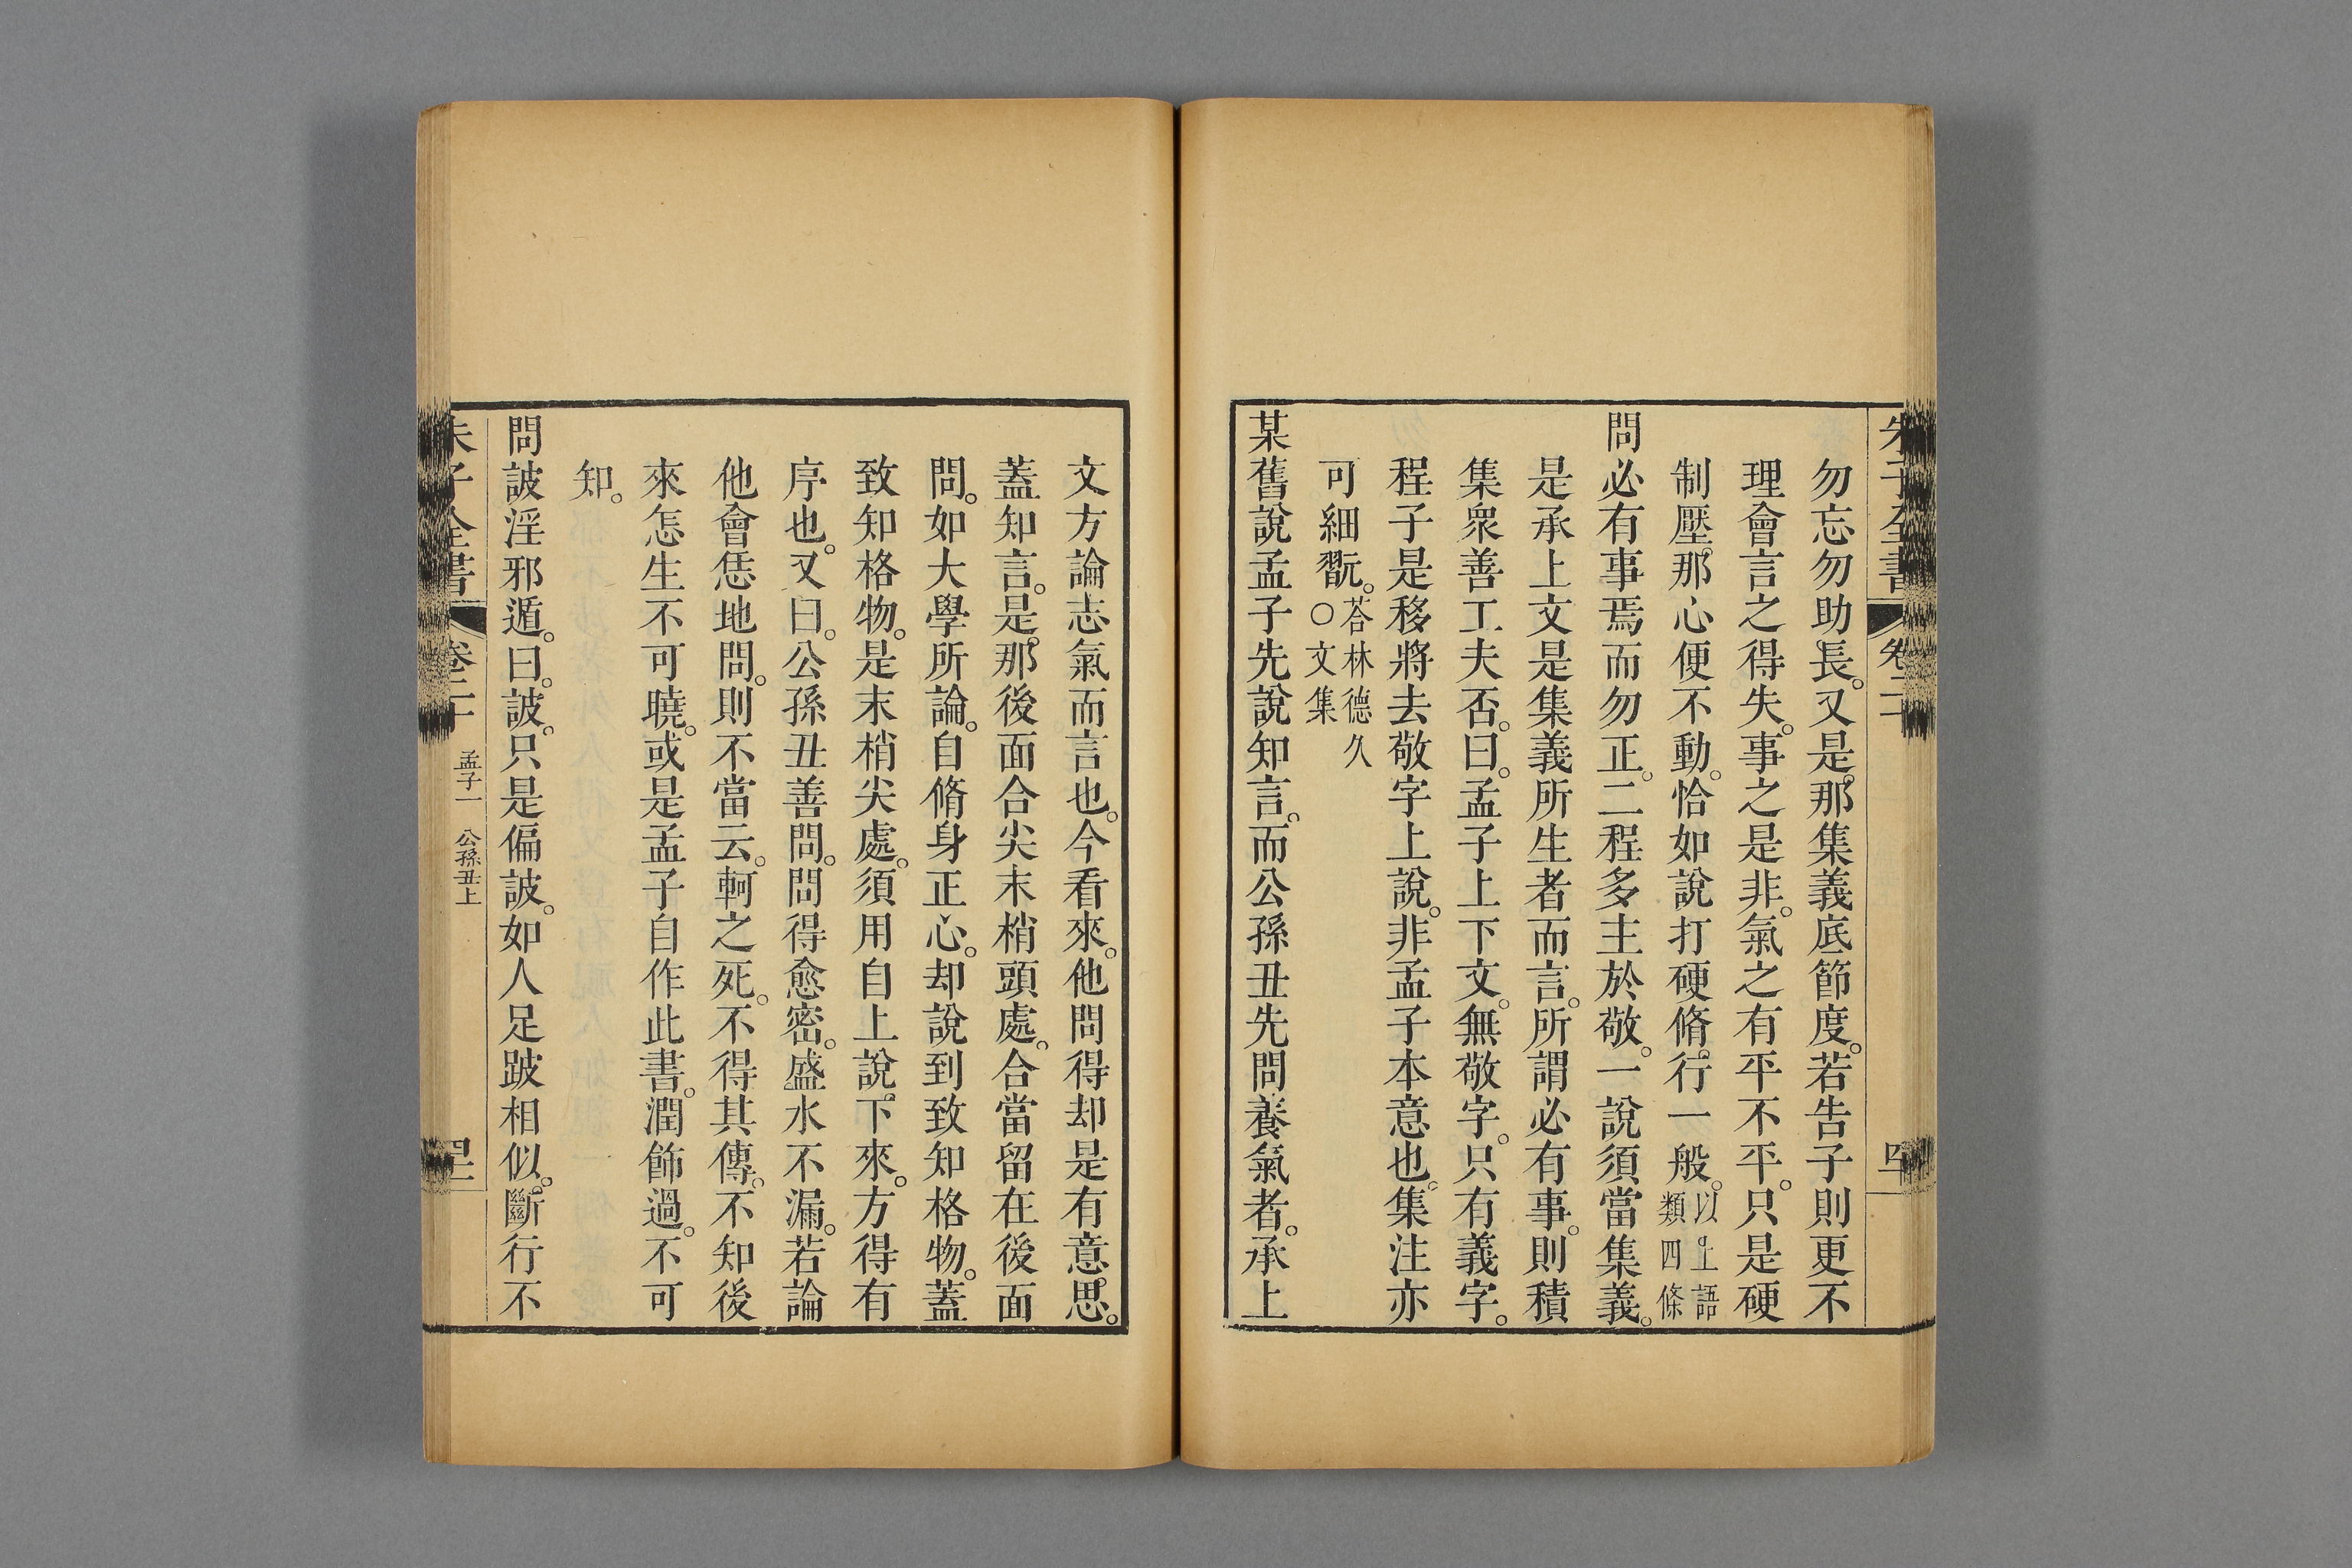 勿忘勿助長。又是那集義底節度。若告子則更不
理會言之得失。事之是非。氣之有平不平。只是硬
制壓。那心便不動。恰如說打硬脩行一般。以上語類四條
問必有事焉而勿正。二程多主於敬。一說須當集義。
是承上文是集義所生者而言。所謂必有事。則積
集衆善工夫否。曰。孟子上下文。無敬字。只有義字。
程子是移將去敬字上說。非孟子本意也。集注亦
可細翫。荅林德久○文集
某舊說孟子先說知言。而公孫丑先問養氣者。承上
文方論志氣而言也。今看來。他問得却是有意思。
蓋知言。是那後面合尖末梢頭處。合當留在後面
問。如大學所論。自脩身正心。却說到致知格物。蓋
致知格物。是末梢尖處。須用自上說下來。方得有
序也。又曰。公孫丑善問。問得愈密。盛水不漏。若論
他會恁地問。則不當云。軻之死。不得其傳。不知後
來怎生不可曉。或是孟子自作此書。潤飾過。不可
知。
問詖淫邪遁。曰。詖。只是偏詖。如人足跛相似。斷行不
朱子全書
卷二十
孟子一 公孫丑上